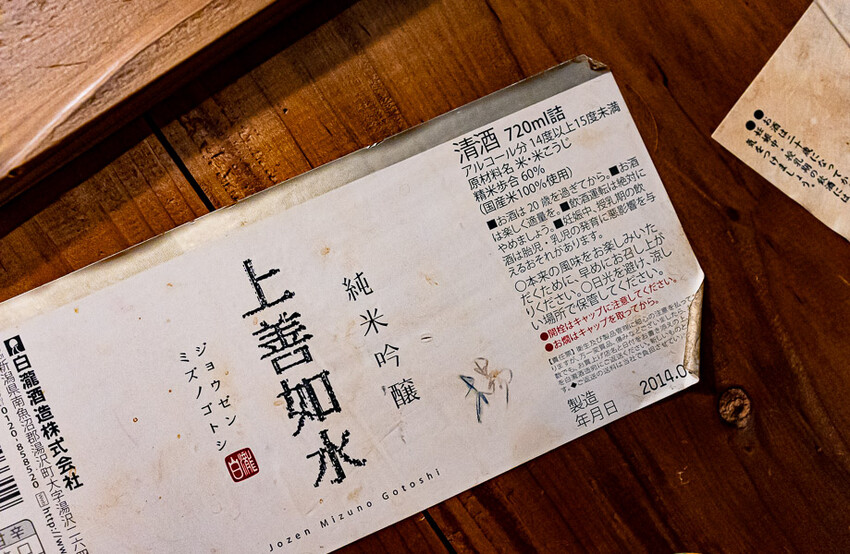 清酒 720ml詰
アルコール分 14度以上15度未満
原材料名 米・米こうじ
精米歩合 60%
(国産米100%使用)
■お酒は 20歳を過ぎてから。■お酒
は楽しく適量を。■飲酒運転は絶対に
やめましょう。■妊娠中、授乳期の飲
酒は胎児・乳児の発育に悪影響を与
えるおそれがあります。
○本来の風味をお楽しみいた
だくために、早めにお召し上が
りください。○日光を避け、涼し
い場所で保管してください。
●開栓はキャップに注意してください。
●お燗はキャップを取ってから。
製造
年月日
2014.0
純米吟醸
上善如水
ジョウゼン
ミズノゴトシ
白瀧
Jozen Mizuno Gotoshi
白瀧酒造株式会社
新潟県南魚沼郡湯沢町大字湯沢二六四
0120-858520
http://www
甘辛
●お酒は二十歳になってか
●妊娠中、授乳期の飲酒には
気をつけましょう。